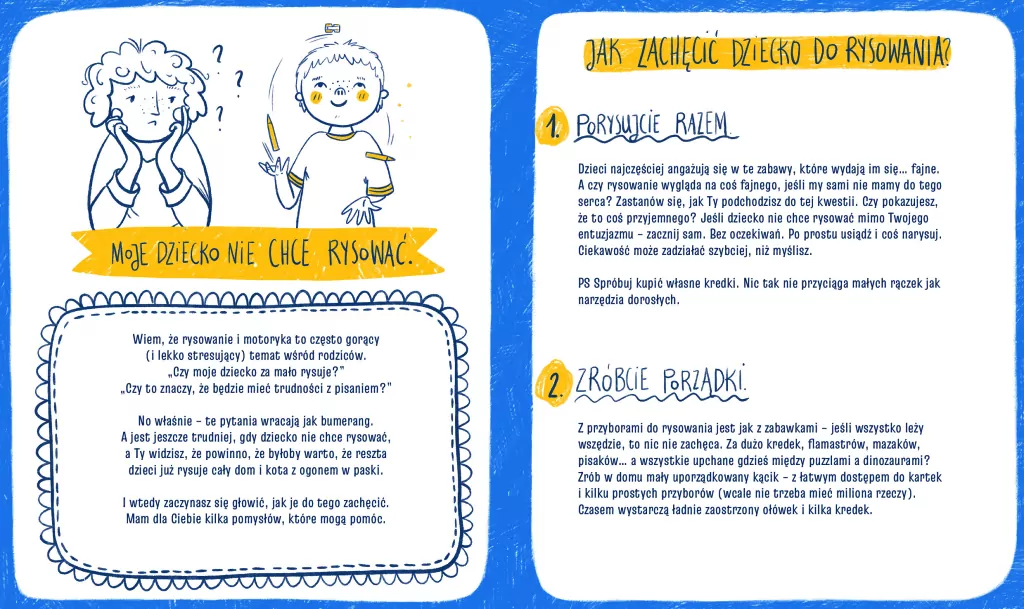 ?
?
?
MOJE DZIECKO NIE CHCE RYSOWAĆ.
Wiem, że rysowanie i motoryka to często gorący
(i lekko stresujący) temat wśród rodziców.
„Czy moje dziecko za mało rysuje?”
„Czy to znaczy, że będzie mieć trudności z pisaniem?”
No właśnie – te pytania wracają jak bumerang.
A jest jeszcze trudniej, gdy dziecko nie chce rysować,
a Ty widzisz, że powinno, że byłoby warto, że reszta
dzieci już rysuje cały dom i kota z ogonem w paski.
I wtedy zaczynasz się głowić, jak je do tego zachęcić.
Mam dla Ciebie kilka pomysłów, które mogą pomóc.
JAK ZACHĘCIĆ DZIECKO DO RYSOWANIA?
1. PORYSUJCIE RAZEM.
Dzieci najczęściej angażują się w te zabawy, które wydają im się... fajne.
A czy rysowanie wygląda na coś fajnego, jeśli my sami nie mamy do tego
serca? Zastanów się, jak Ty podchodzisz do tej kwestii. Czy pokazujesz,
że to coś przyjemnego? Jeśli dziecko nie chce rysować mimo Twojego
entuzjazmu – zacznij sam. Bez oczekiwań. Po prostu usiądź i coś narysuj.
Ciekawość może zadziałać szybciej, niż myślisz.
PS Spróbuj kupić własne kredki. Nic tak nie przyciąga małych rączek jak
narzędzia dorosłych.
2. ZRÓBCIE PORZĄDKI.
Z przyborami do rysowania jest jak z zabawkami – jeśli wszystko leży
wszędzie, to nic nie zachęca. Za dużo kredek, flamastrów, mazaków,
pisaków... a wszystkie upchane gdzieś między puzzlami a dinozaurami?
Zrób w domu mały uporządkowany kącik – z łatwym dostępem do kartek
i kilku prostych przyborów (wcale nie trzeba mieć miliona rzeczy).
Czasem wystarczą ładnie zaostrzony ołówek i kilka kredek.